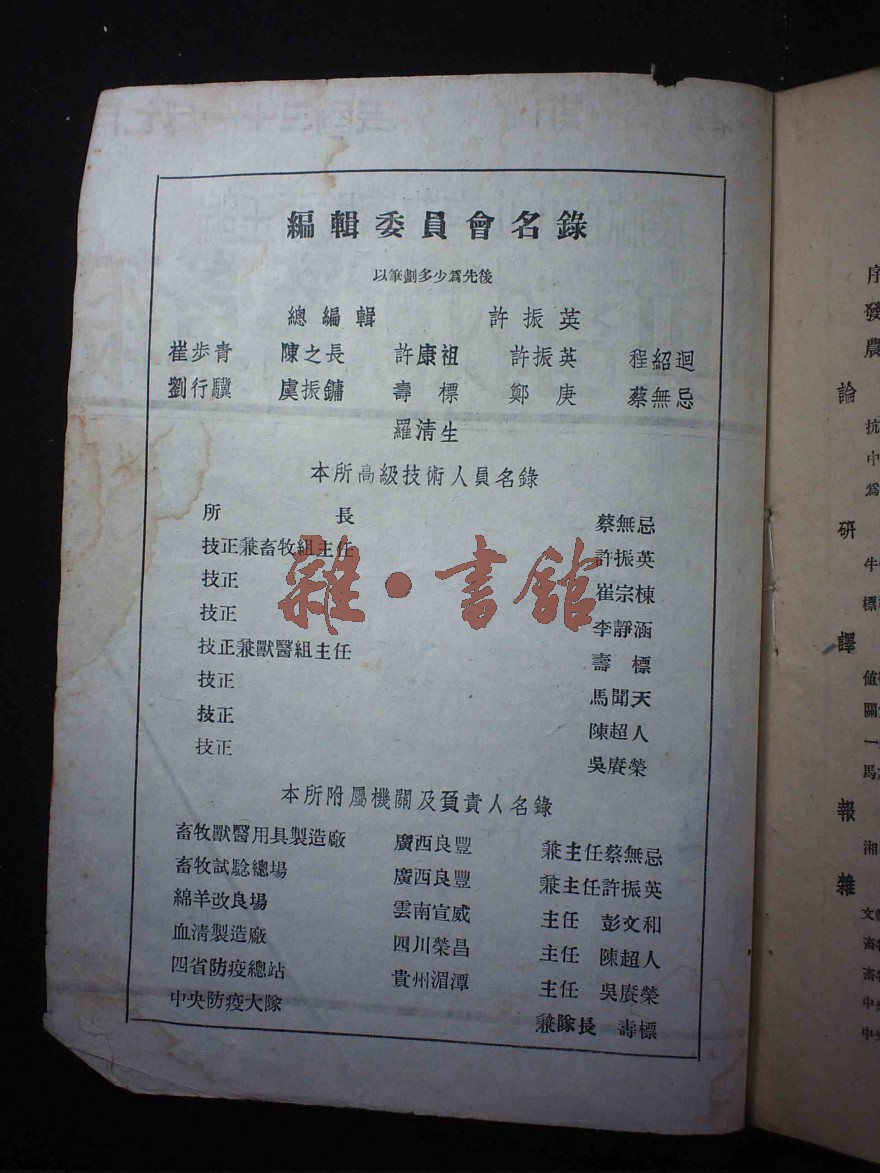 編輯委員會名錄
以筆劃多少為先後
總編輯 許振英
崔步青 陳之長 許康祖 許振英 程紹迥
劉行驥 虞振鏞 壽標 鄭庚 蔡無忌
羅清生
本所高級技術人員名錄
所長 蔡無忌
技正兼畜牧組主任 許振英
技正 崔宗棟
技正 李靜涵
技正兼獸醫組主任 壽標
技正 馬聞天
技正 陳超人
技正 吳賡榮
雜·書館
本所附屬機關及負責人名錄
畜牧獸醫用具製造廠 廣西良豐 兼主任蔡無忌
畜牧試驗總場 廣西良豐 兼主任許振英
綿羊改良場 雲南宣威 主任 彭文和
血清製造廠 四川榮昌 主任 陳超人
四省防疫總站 貴州湄潭 主任 吳賡榮
中央防疫大隊 兼隊長 壽標
序
發
農
論
抗
中
為
研
牛
標
譯
關
一
馬
報
湘
雜
文
畜
畜
中央
中央